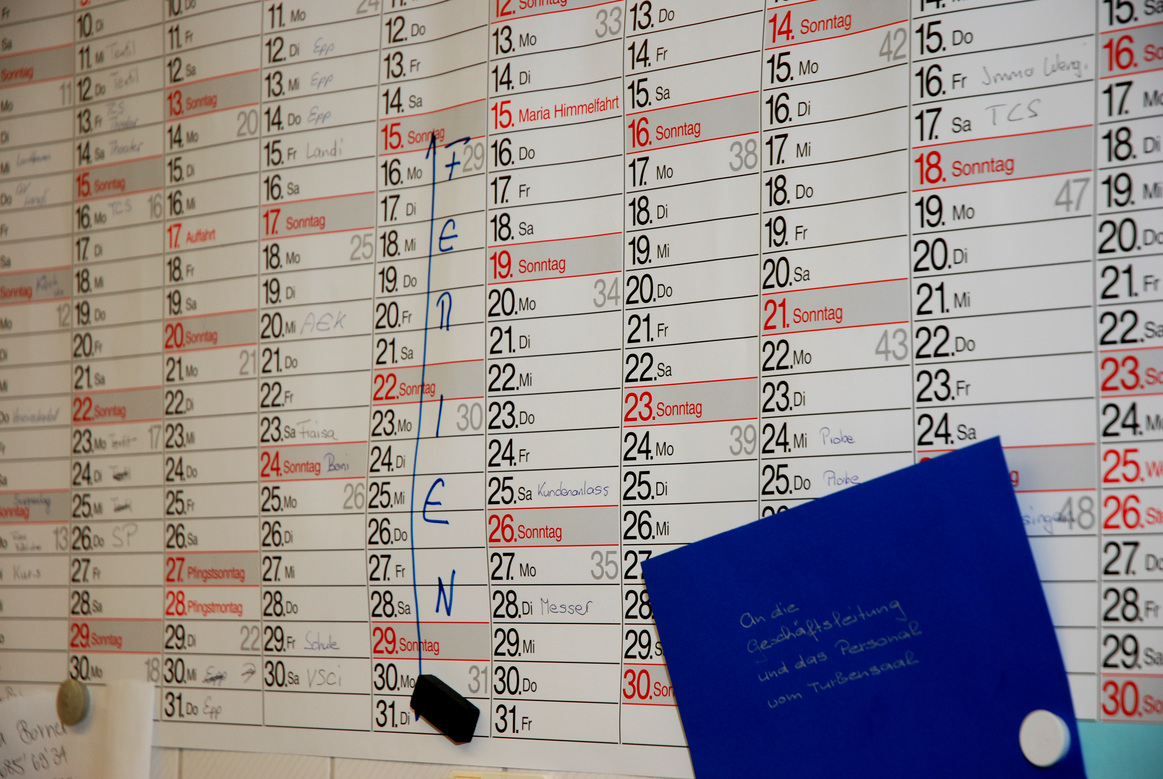 Sonntag
11
Sonntag
12
Sonntag
13
Kurs
10. Di
11. Mi Textil
12. Do Textil
13. Fr TCS Theater
14. Sa Theater
15. Sonntag
16. Mo TCS 16
17. Di
18. Mi
19. Do
20. Fr
21. Sa
22. Sonntag
23. Mo 17
24. Di
25. Mi
26. Do SP
27. Fr
28. Sa
29. Sonntag
30. Mo 18
10. Do
11. Fr
12. Sa
13. Sonntag
14. Mo 20
15. Di
16. Mi
17. Auffahrt
18. Fr
19. Sa
20. Sonntag
21. Mo 21
22. Di
23. Mi
24. Do
25. Fr
26. Sa
27. Pfingstsonntag
28. Pfingstmontag
29. Di 22
30. Mi Epp →
31. Do Epp
11. Mo 24
12. Di Epp
13. Mi Epp
14. Do Epp
15. Fr Landi
16. Sa
17. Sonntag
18. Mo 25
19. Di
20. Mi AEK
21. Do
22. Fr
23. Sa Fraisa
24. Sonntag Boni
25. Mo 26
26. Di
27. Mi
28. Do
29. Fr Schule
30. Sa VSCi
12. Do
13. Fr
14. Sa
15. Sonntag
16. Mo 29
17. Di
18. Mi
19. Do
20. Fr
21. Sa
22. Sonntag
23. Mo 30
24. Di
25. Mi
26. Do
27. Fr
28. Sa
29. Sonntag
30. Mo 31
31. Di
F
E
R
I
E
N
12. Sonntag
13. Mo 33
14. Di
15. Maria Himmelfahrt
16. Do
17. Fr
18. Sa
19. Sonntag
20. Mo 34
21. Di
22. Mi
23. Do
24. Fr
25. Sa Kundenanlass
26. Sonntag
27. Mo 35
28. Di Messer
29. Mi
30. Do
31. Fr
13. Do
14. Fr
15. Sa
16. Sonntag
17. Mo 38
18. Di
19. Mi
20. Do
21. Fr
22. Sa
23. Sonntag
24. Mo 39
25. Di
26. Mi
27
28
29. S
30. Son
14. Sonntag
15. Mo 42
16. Di
17. Mi
18. Do
19. Fr
20. Sa
21. Sonntag
22. Mo 43
23. Di
24. Mi Probe
25. Do Probe
15. Do
16. Fr
17. Sa TCS
18. Sonntag
19. Mo 47
20. Di
21. Mi
22. Do
23. Fr
24. Sa
48
15. Sa
16. So
17. Mo
18. Di
19. Mi
20. Do
21. Fr
22. Sa
23. So
24. Mo
25. W
26. S
27. Do
28. Fr
29. Sa
30. So
An die
Geschäftsleitung
und das Personal
vom Turbensaal
Borner
685'09'31